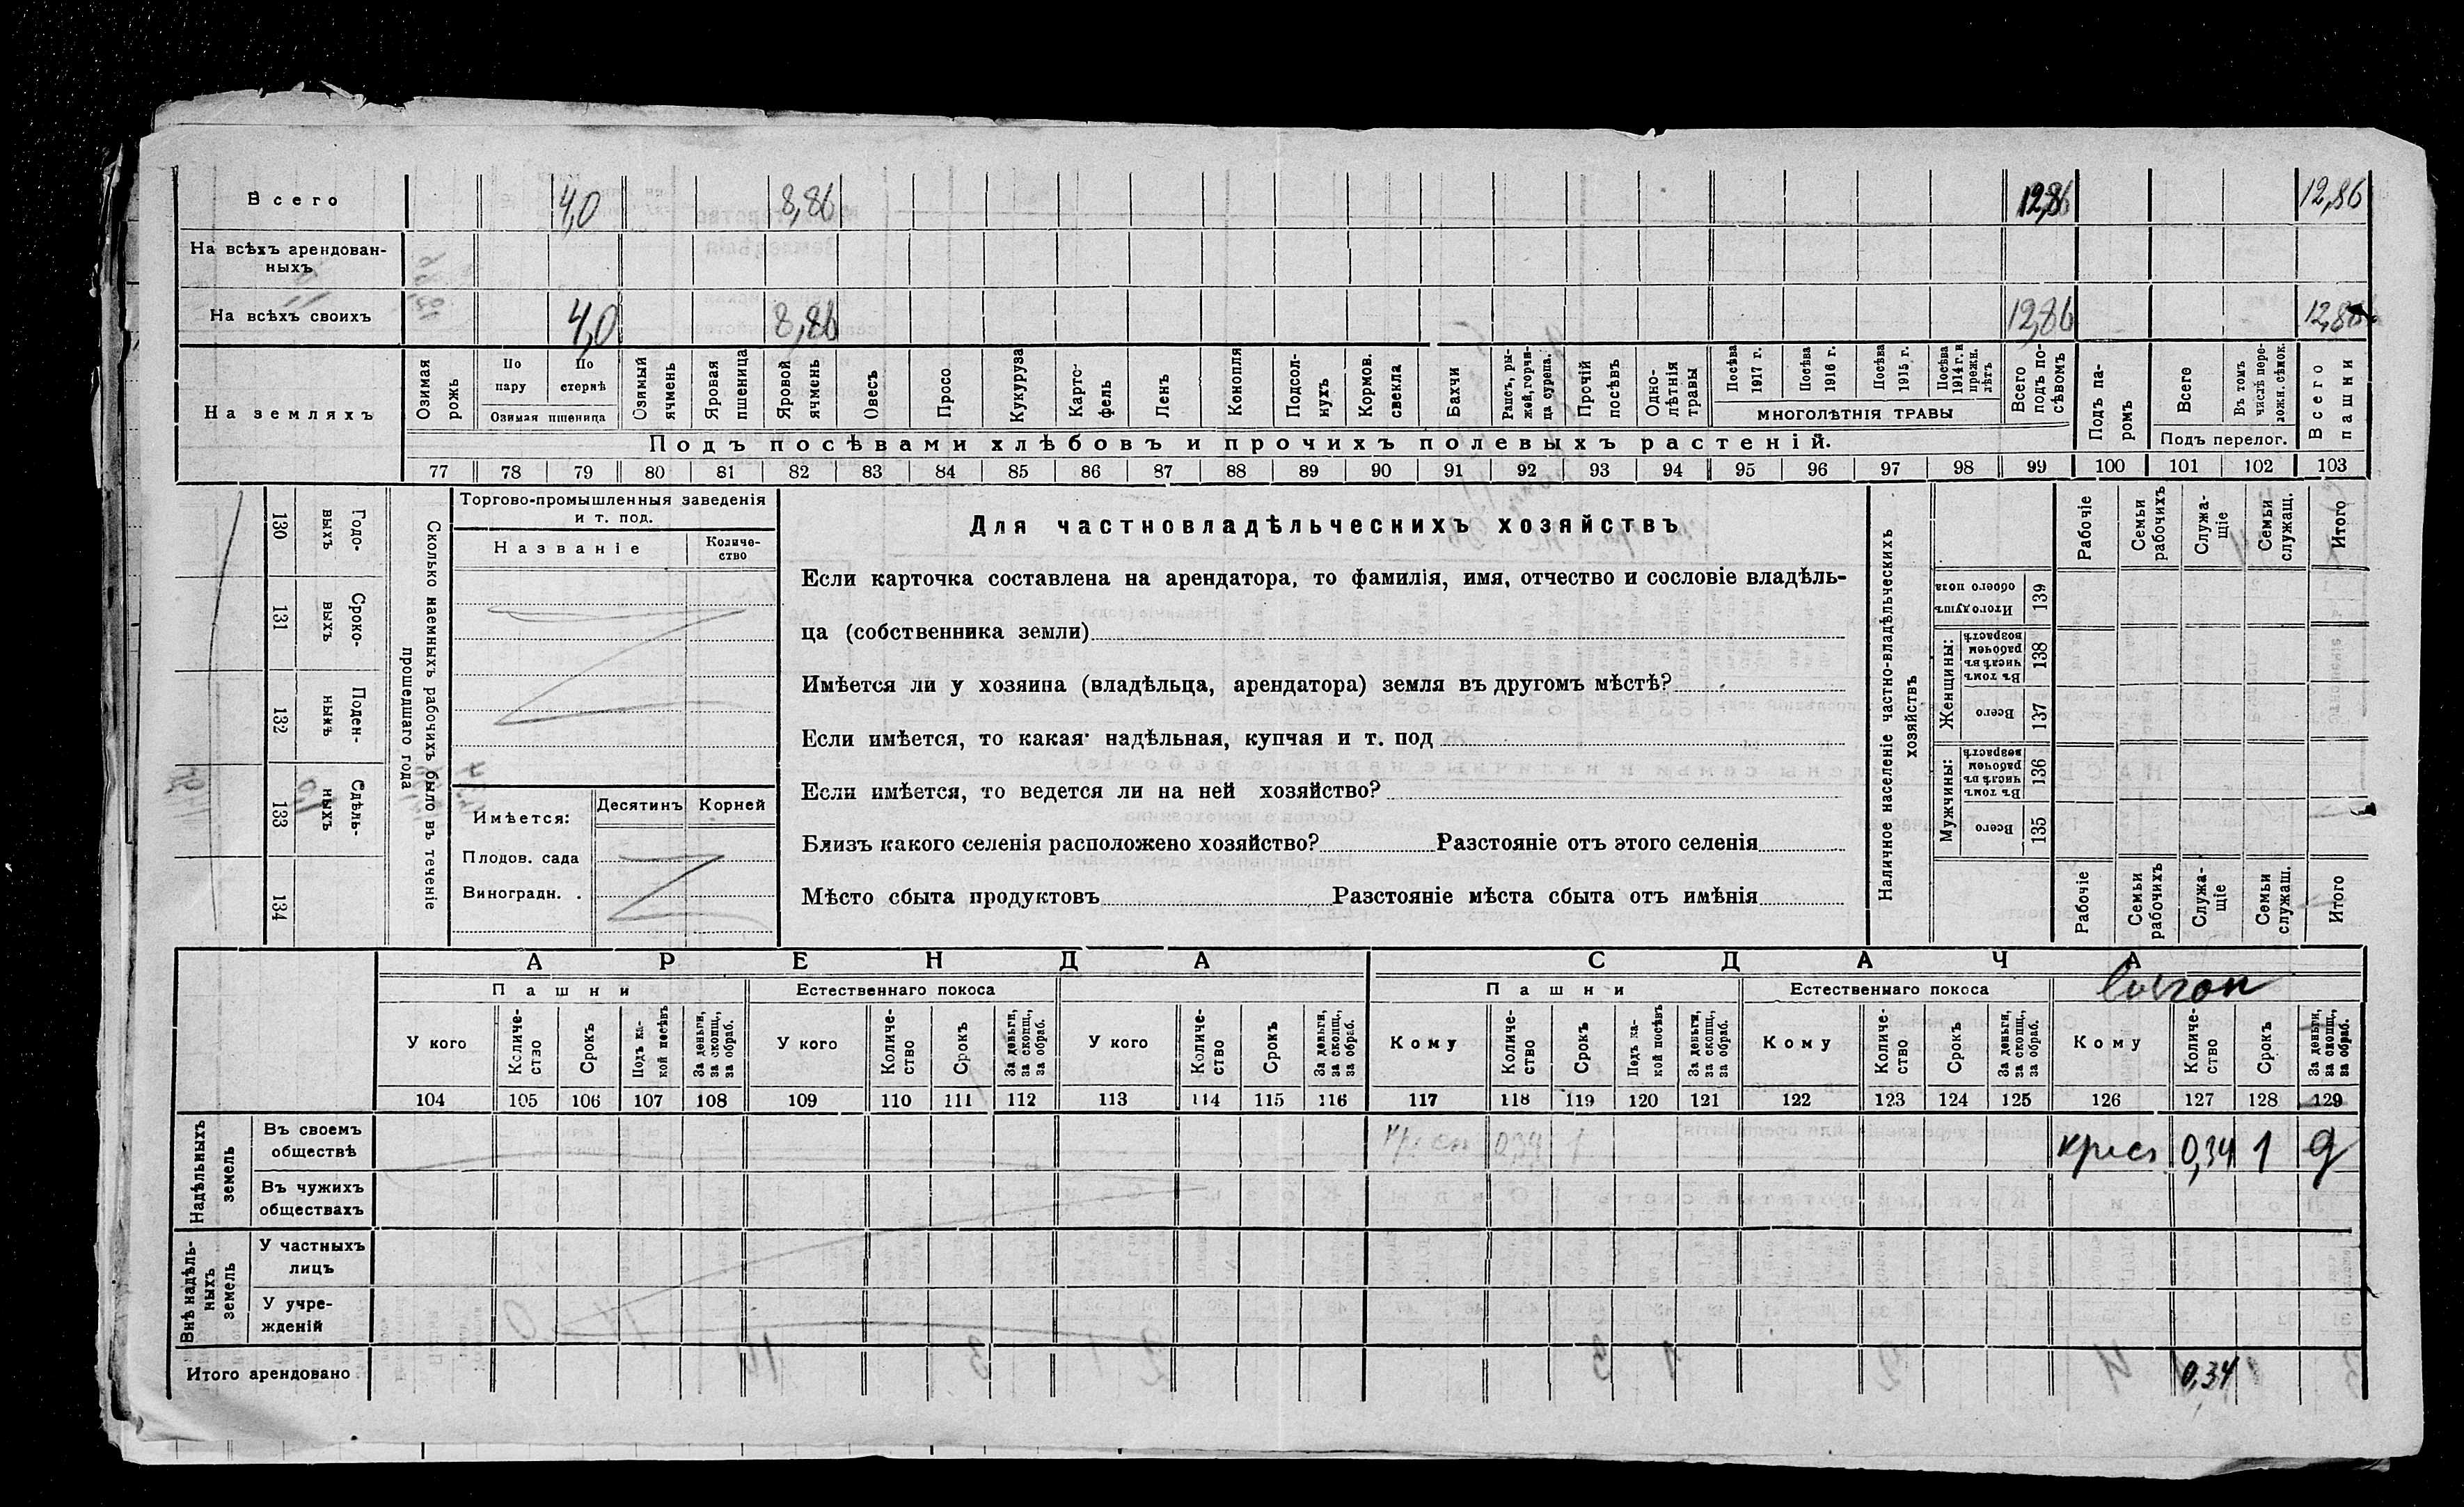 Всего 4,0 8,86 12,86 12,86
На всѣхъ арендован-
ныхъ
На всѣхъ своихъ 4,0 8,86 12,86 12,86
На земляхъ
Озимая рожь
По пару
По стернѣ
Озимая пшеница
Озимый ячмень
Яровая пшеница
Яровой ячмень
Овесъ
Просо
Кукуруза
Карто-
фель
Ленъ
Конопля
Подсол-
нухъ
Кормов.
свекла
Бахчи
Рапсъ, ры-
жей, горчи-
ца сурепа.
Прочій
посѣвъ
Одно-
лѣтнія
травы
Посѣва
1917 г.
Посѣва
1916 г.
Посѣва
1915 г.
Посѣва
1914 г. и
прежн.
лѣтъ
МНОГОЛѢТНІЯ ТРАВЫ
Всего
подъ по-
сѣвомъ
Подъ па-
ромъ
Всего
Въ томъ
числѣ пере-
ложн. сѣнок.
Подъ перелог.
Всего
пашни
Подъ посѣвами хлѣбовъ и прочихъ полевыхъ растеній.
77 78 79 80 81 82 83 84 85 86 87 88 89 90 91 92 93 94 95 96 97 98 99 100 101 102 103
130 Годо-
выхъ
131 Сроко-
выхъ
132 Поден-
ныхъ
133 Сдѣль-
ныхъ
134
Сколько наемныхъ рабочихъ было въ теченіе
прошедшаго года
Торгово-промышленныя заведенія
и т. под.
Названіе
Количе-
ство
Имѣется:
Десятинъ Корней
Плодов. сада
Виноградн. .
Для частновладѣльческихъ хозяйствъ
Если карточка составлена на арендатора, то фамилія, имя, отчество и сословіе владѣль-
ца (собственника земли)
Имѣется ли у хозяина (владѣльца, арендатора) земля въ другомъ мѣстѣ?
Если имѣется, то какая: надѣльная, купчая и т. под
Если имѣется, то ведется ли на ней хозяйство?
Близъ какого селенія расположено хозяйство? Разстояніе отъ этого селенія
Мѣсто сбыта продуктовъ Разстояніе мѣста сбыта отъ имѣнія
Наличное населеніе частно-владѣльческихъ
хозяйствъ
Рабочіе
Семьи
рабочихъ
Служа-
щіе
Семьи
служащ.
Итого
Итого душъ
обоего пола
139
Женщины:
Въ томъ
числѣ въ
рабочем
возрастѣ
138
Всего
137
Мужчины:
Въ томъ
числѣ въ
рабочем
возрастѣ
136
Всего
135
Рабочіе
Семьи
рабочихъ
Служа-
щіе
Семьи
служащ.
Итого
АРЕНДА СДАЧА
Пашни Естественнаго покоса Пашни Естественнаго покоса
У кого
Количе-
ство
Срокъ
Подъ ка-
кой посѣвъ
За деньги,
за скопщ.,
за обраб.
У кого
Количе-
ство
Срокъ
За деньги,
за скопщ.,
за обраб.
У кого
Количе-
ство
Срокъ
За деньги,
за скопщ.,
за обраб.
Кому
Количе-
ство
Срокъ
Подъ ка-
кой посѣвъ
За деньги,
за скопщ.,
за обраб.
Кому
Количе-
ство
Срокъ
За деньги,
за скопщ.,
за обраб.
Кому
Количе-
ство
Срокъ
За деньги,
за скопщ.,
за обраб.
104 105 106 107 108 109 110 111 112 113 114 115 116 117 118 119 120 121 122 123 124 125 126 127 128 129
Надѣльныхъ
земель
Въ своемъ
обществѣ 0,34 1 крест 0,34 1 д
Въ чужихъ
обществахъ
Внѣ надѣль-
ныхъ
земель
У частныхъ
лицъ
У учре-
жденій
Итого арендовано 0,34